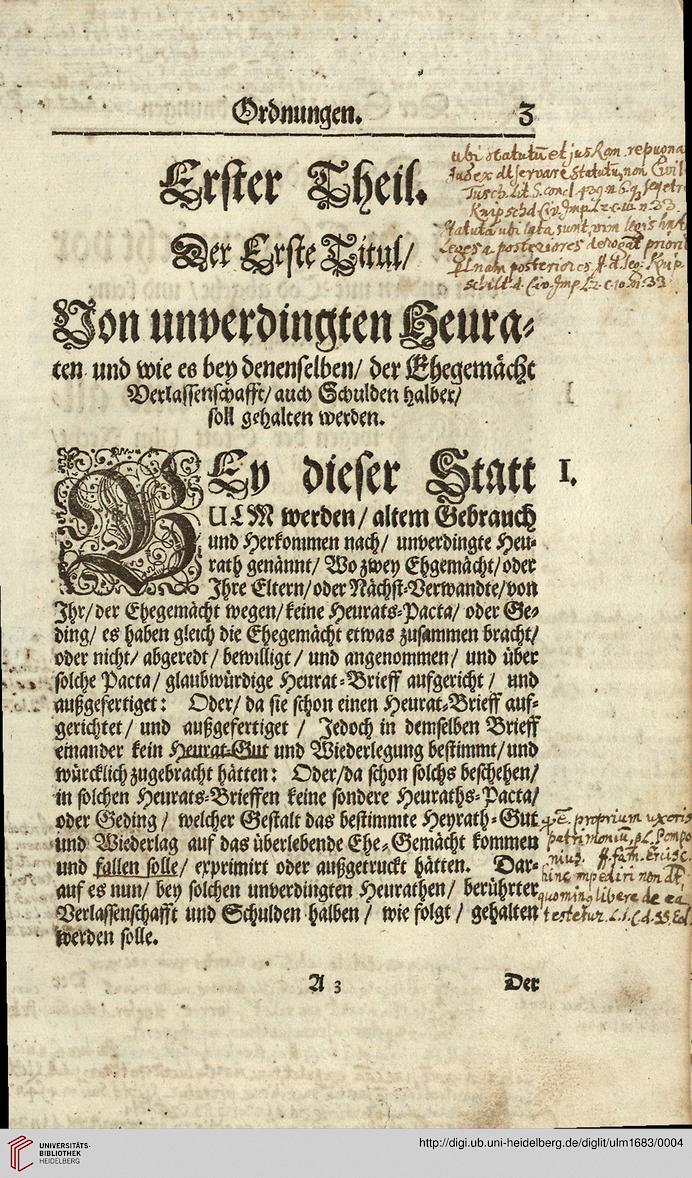 Ordnungen. 3
Erster Theil.
Der Erste Titul/
Von unverdingten Heura-
ten und wie es bey denenselben/ der Ehegemächt
Verlassenschafft/ auch Schulden halber/
soll gehalten werden.
ubi statutũ et jus Rom. repugna
Judex dt servare Statutũ non Civil
Knipschild Civ. Imp. L. 2. c. 10. n. 33
Statuta ubi lata sunt, vim legis
Leges a posteriores derogãt priori
posteriores
schilt d. Civ. Imp. L. 2. c. 10. n. 33
BEy dieser Statt I.
ULM werden/ altem Gebrauch
und Herkommen nach/ unverdingte Heu-
rath genännt/ Wo zwey Ehgemächt/ oder
Ihre Eltern/ oder Nächst-Verwandte/ von
Ihr/ der Ehegemächt wegen/ keine Heurats-Pacta/ oder Ge-
ding/ es haben gleich die Ehegemächt etwas zusammen bracht/
oder nicht/ abgeredt/ bewilligt/ und angenommen/ und über
solche Pacta/ glaubwürdige Heurat-Brieff aufgericht/ und
außgefertiget: Oder/ da sie schon einen Heurat-Brieff auf-
gerichtet/ und außgefertiget/ Jedoch in demselben Brieff
einander kein Heurat-Gut und Wiederlegung bestimmt/ und
würcklich zugebracht hätten: Oder/ da schon solchs beschehen/
in solchen Heurats-Brieffen keine sondere Heuraths-Pacta/
oder Geding/ welcher Gestalt das bestimmte Heyrath-Gut
und Wiederlag auf das überlebende Ehe-Gemächt kommen
und fallen solle/ exprimirt oder außgetruckt hätten. Dar-
auf es nun/ bey solchen unverdingten Heurathen/ berührter
Verlassenschafft und Schulden halben/ wie folgt/ gehalten
werden solle.
proprium uxoris
patrimoniũ, p L. Pompo
nius. ff. fam. Ercisc.
hinc impediri non dt,
quoming libere de ea
testetur. L. 1. C. d.
A 3 Der
UNIVERSITÄTS-
BIBLIOTHEK
HEIDELBERG
http://digi.ub.uni-heidelberg.de/diglit/ulm1683/0004